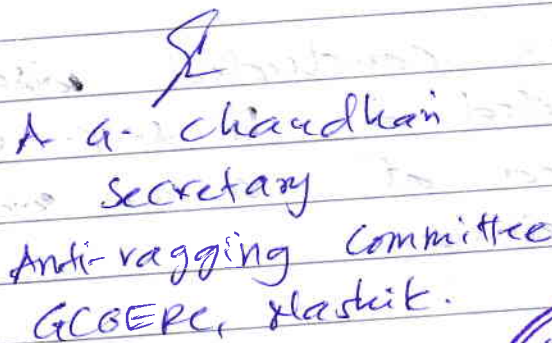 A G. Chaudhari
secretary
Anti-ragging committee
GCOERC, Nashik.